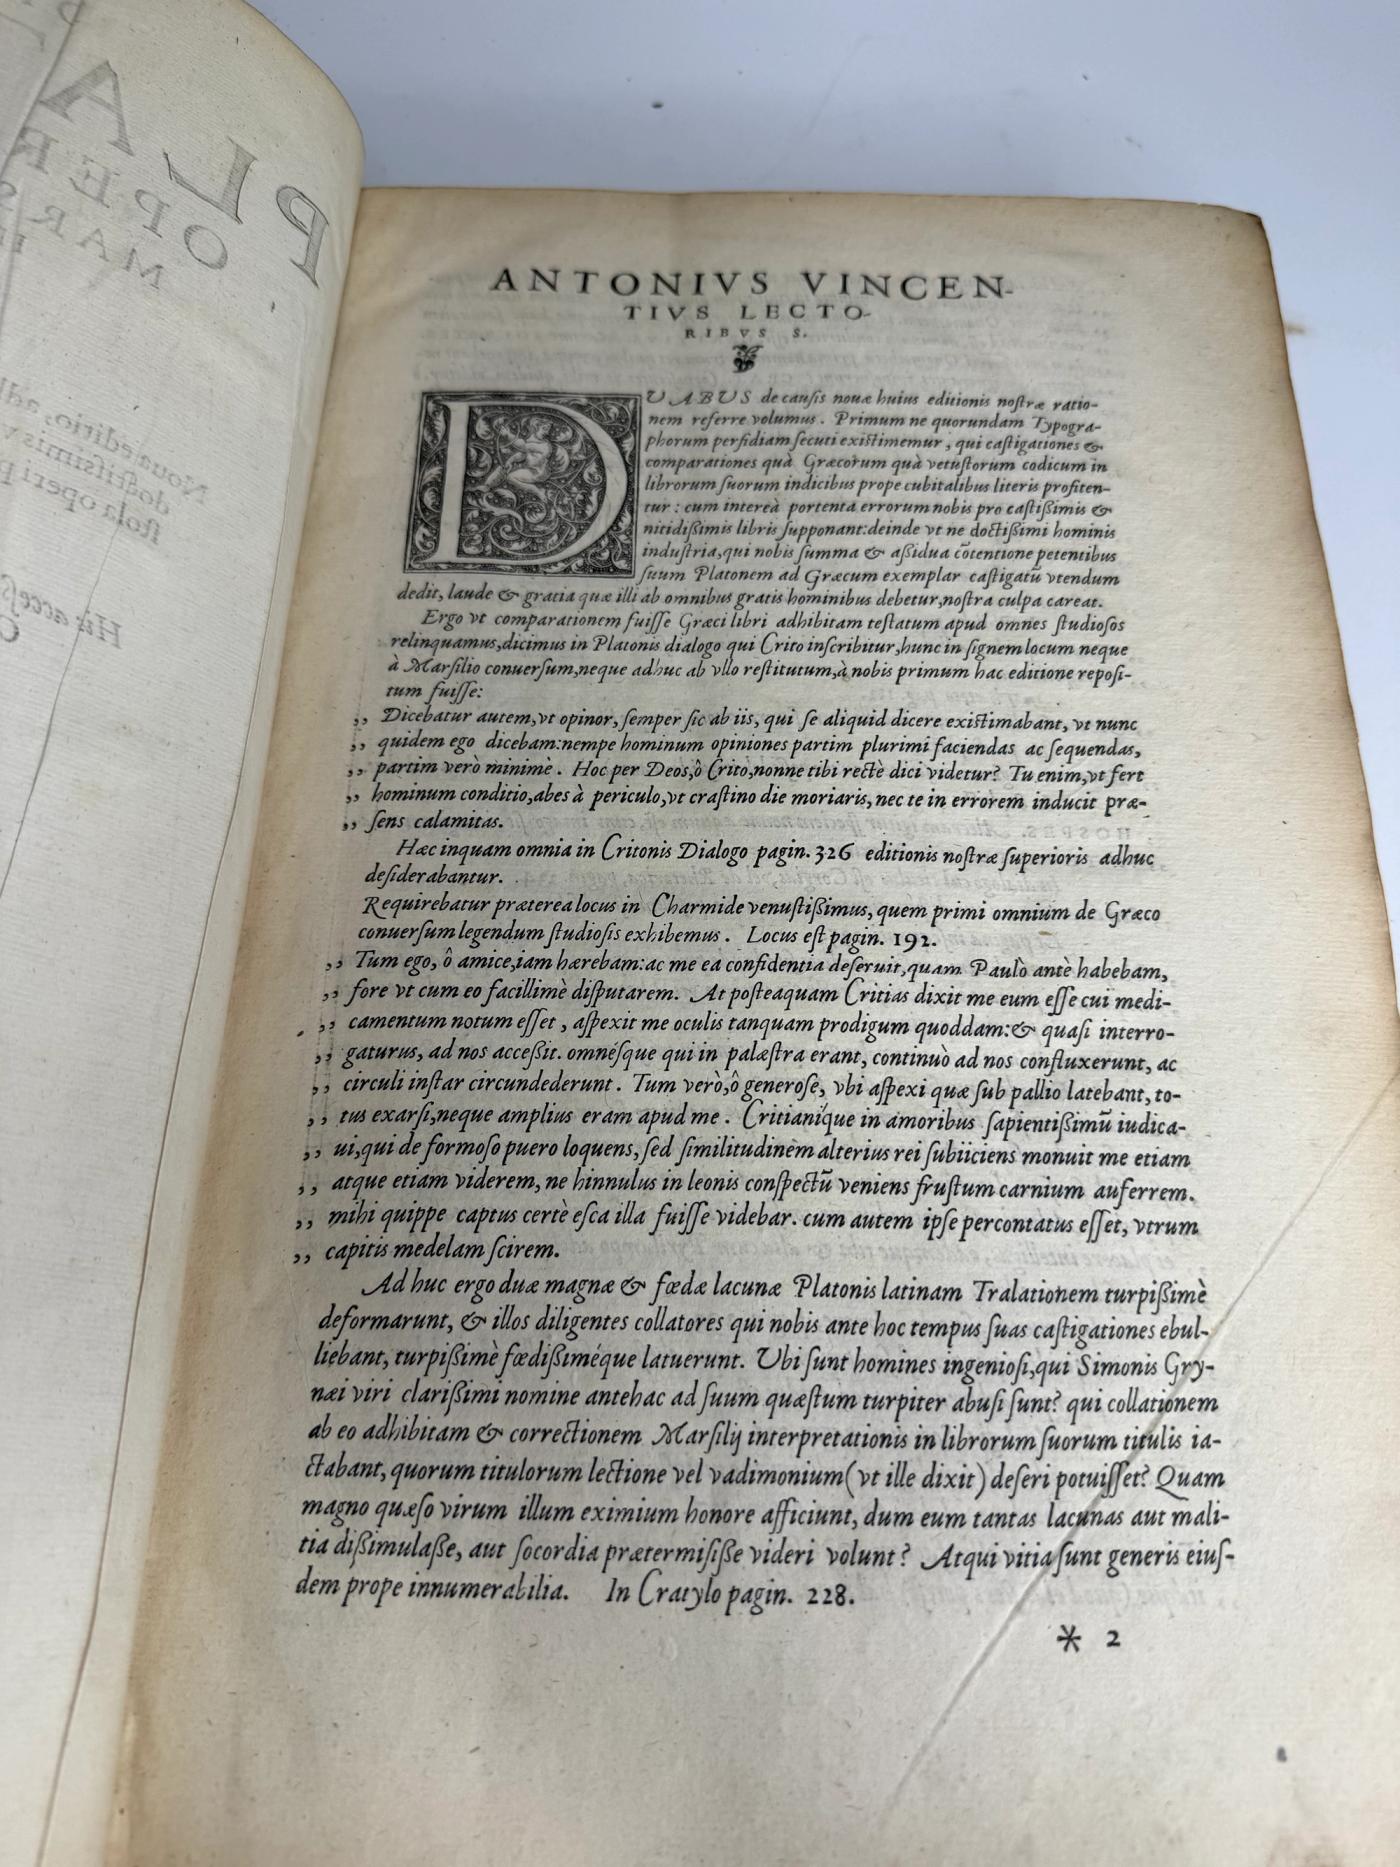 ANTONIVS VINCEN-
TIVS LECTO-
RIBVS S.
DUABUS de causis nouæ huius editionis nostræ ratio-
nem referre volumus. Primum ne quorundam Typogra-
phorum perfidiam secuti existimemur, qui castigationes &
comparationes quà Græcorum quà vetustorum codicum in
librorum suorum indicibus prope cubitalibus literis profiten-
tur: cum intereà portenta errorum nobis pro castißimis &
nitidißimis libris supponant: deinde vt ne doctißimi hominis
industria, qui nobis summa & aßidua cōtentione petentibus
suum Platonem ad Græcum exemplar castigatū vtendum
dedit, laude & gratia quæ illi ab omnibus gratis hominibus debetur, nostra culpa careat.
Ergo vt comparationem fuisse Græci libri adhibitam testatum apud omnes studiosos
relinquamus, dicimus in Platonis dialogo qui Crito inscribitur, hunc insignem locum neque
à Marsilio conuersum, neque adhuc ab vllo restitutum, à nobis primum hac editione reposi-
tum fuisse:
,, Dicebatur autem, vt opinor, semper sic ab iis, qui se aliquid dicere existimabant, vt nunc
,, quidem ego dicebam: nempe hominum opiniones partim plurimi faciendas ac sequendas,
,, partim verò minimè. Hoc per Deos, ô Crito, nonne tibi rectè dici videtur? Tu enim, vt fert
,, hominum conditio, abes à periculo, vt crastino die moriaris, nec te in errorem inducit præ-
,, sens calamitas.
Hæc inquam omnia in Critonis Dialogo pagin. 326 editionis nostræ superioris adhuc
desiderabantur.
Requirebatur præterea locus in Charmide venustißimus, quem primi omnium de Græco
conuersum legendum studiosis exhibemus. Locus est pagin. 192.
,, Tum ego, ô amice, iam hærebam: ac me ea confidentia deseruit, quam Paulò antè habebam,
,, fore vt cum eo facillimè disputarem. At posteaquam Critias dixit me eum esse cui medi-
,, camentum notum esset, aspexit me oculis tanquam prodigum quoddam: & quasi interro-
,, gaturus, ad nos acceßit. omnésque qui in palæstra erant, continuò ad nos confluxerunt, ac
,, circuli instar circundederunt. Tum verò, ô generose, vbi aspexi quæ sub pallio latebant, to-
,, tus exarsi, neque amplius eram apud me. Critianíque in amoribus sapientißimū iudica-
,, ui, qui de formoso puero loquens, sed similitudinem alterius rei subiiciens monuit me etiam
,, atque etiam viderem, ne hinnulus in leonis conspectū veniens frustum carnium auferrem.
,, mihi quippe captus certè esca illa fuisse videbar. cum autem ipse percontatus esset, vtrum
,, capitis medelam scirem.
Ad huc ergo duæ magnæ & fœdæ lacunæ Platonis latinam Tralationem turpißimè
deformarunt, & illos diligentes collatores qui nobis ante hoc tempus suas castigationes ebul-
liebant, turpißimè fœdißiméque latuerunt. Ubi sunt homines ingeniosi, qui Simonis Gry-
næi viri clarißimi nomine antehac ad suum quæstum turpiter abusi sunt? qui collationem
ab eo adhibitam & correctionem Marsilij interpretationis in librorum suorum titulis ia-
ctabant, quorum titulorum lectione vel vadimonium (vt ille dixit) deseri potuisset? Quam
magno quæso virum illum eximium honore afficiunt, dum eum tantas lacunas aut mali-
tia dißimulaße, aut socordia prætermisiße videri volunt? Atqui vitia sunt generis eius-
dem prope innumerabilia. In Cratylo pagin. 228.
* 2